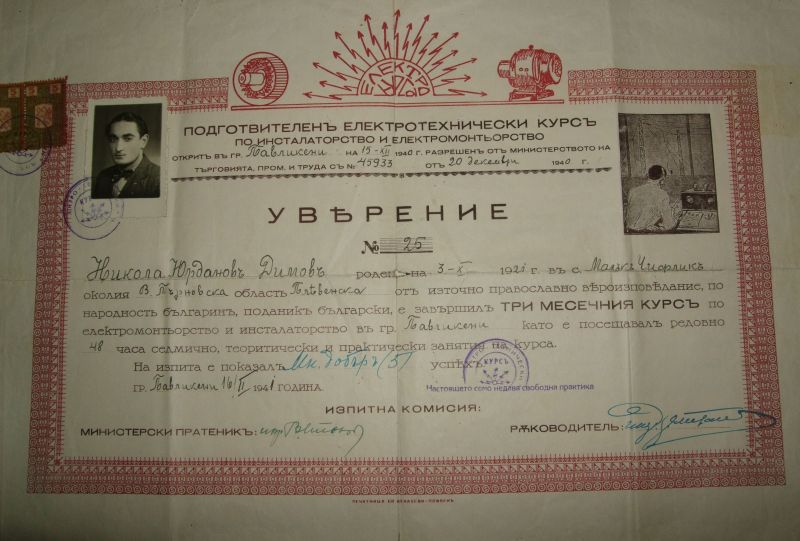 ЕЛЕКТРО
КУРСЪ
ПОДГОТВИТЕЛЕНЪ ЕЛЕКТРОТЕХНИЧЕСКИ КУРСЪ
ПО ИНСТАЛАТОРСТВО И ЕЛЕКТРОМОНТЬОРСТВО
ОТКРИТЪ ВЪ ГР. Павликени НА 15-XII 1940 Г. РАЗРЕШЕНЪ ОТЪ МИНИСТЕРСТВОТО НА
ТЪРГОВИЯТА, ПРОМ. И ТРУДА СЪ № 45933 ОТЪ 20 декември 1940 г.
УВѢРЕНИЕ
№ 25
Никола Юрдановъ Димовъ роденъ на 3-X 1921 г. въ с. Малъкъ Чифликъ
околия В. Търновска область Плѣвенска отъ източно православно вѣроизповѣдание, по
народность българинъ, поданикъ български, е завършилъ ТРИ МЕСЕЧНИЯ КУРСЪ по
електромонтьорство и инсталаторство въ гр. Павликени като е посещавалъ редовно
48 часа седмично, теоритически и практически занятия на курса.
На изпита е показалъ Мн. добъръ (5) успѣхъ.
гр. Павликени 16/II 1941 ГОДИНА.
КУРСЪ
Настоящето само недава свободна практика
ИЗПИТНА КОМИСИЯ:
МИНИСТЕРСКИ ПРАТЕНИКЪ:
РѪКОВОДИТЕЛЬ: